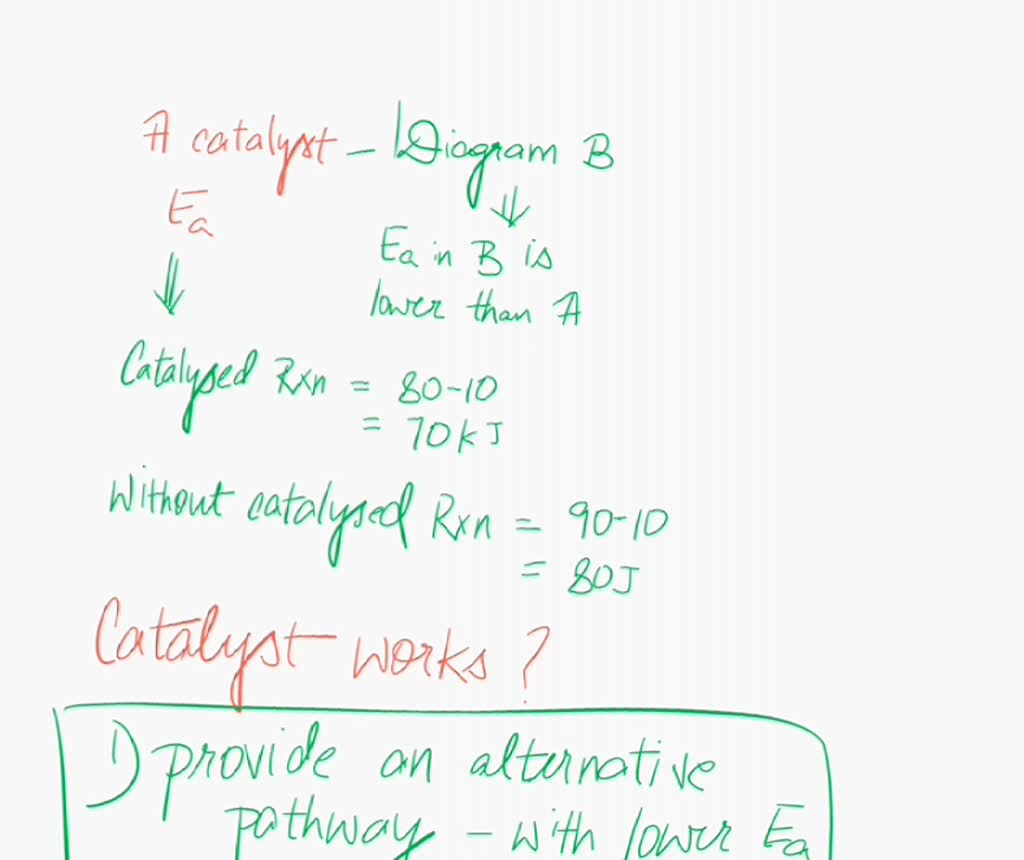 A catalyst - Diagram B
Ea
Ea in B is
lower than A
Catalysed Rxn = 80-10
= 70kJ
Without catalysed Rxn = 90-10
= 80J
Catalyst works?
1) provide an alternative
pathway - with lower Ea